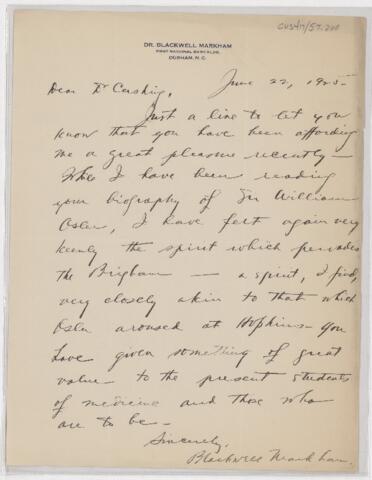 CUSH/57.200
DR. BLACKWELL MARKHAM
FIRST NATIONAL BANK BLDG.
DURHAM, N. C.
June 22, 1925-
Dear Dr Cushing,
Just a line to let you
know that you have been affording
me a great pleasure recently -
While I have been reading
your biography of Sir William
Osler, I have felt again very
keenly the spirit which pervades
the Brigham — a spirit, I find,
very closely akin to that which
Osler aroused at Hopkins - You
have given something of great
value to the present students
of medicine and those who
are to be -
Sincerely,
Blackwell Markham.